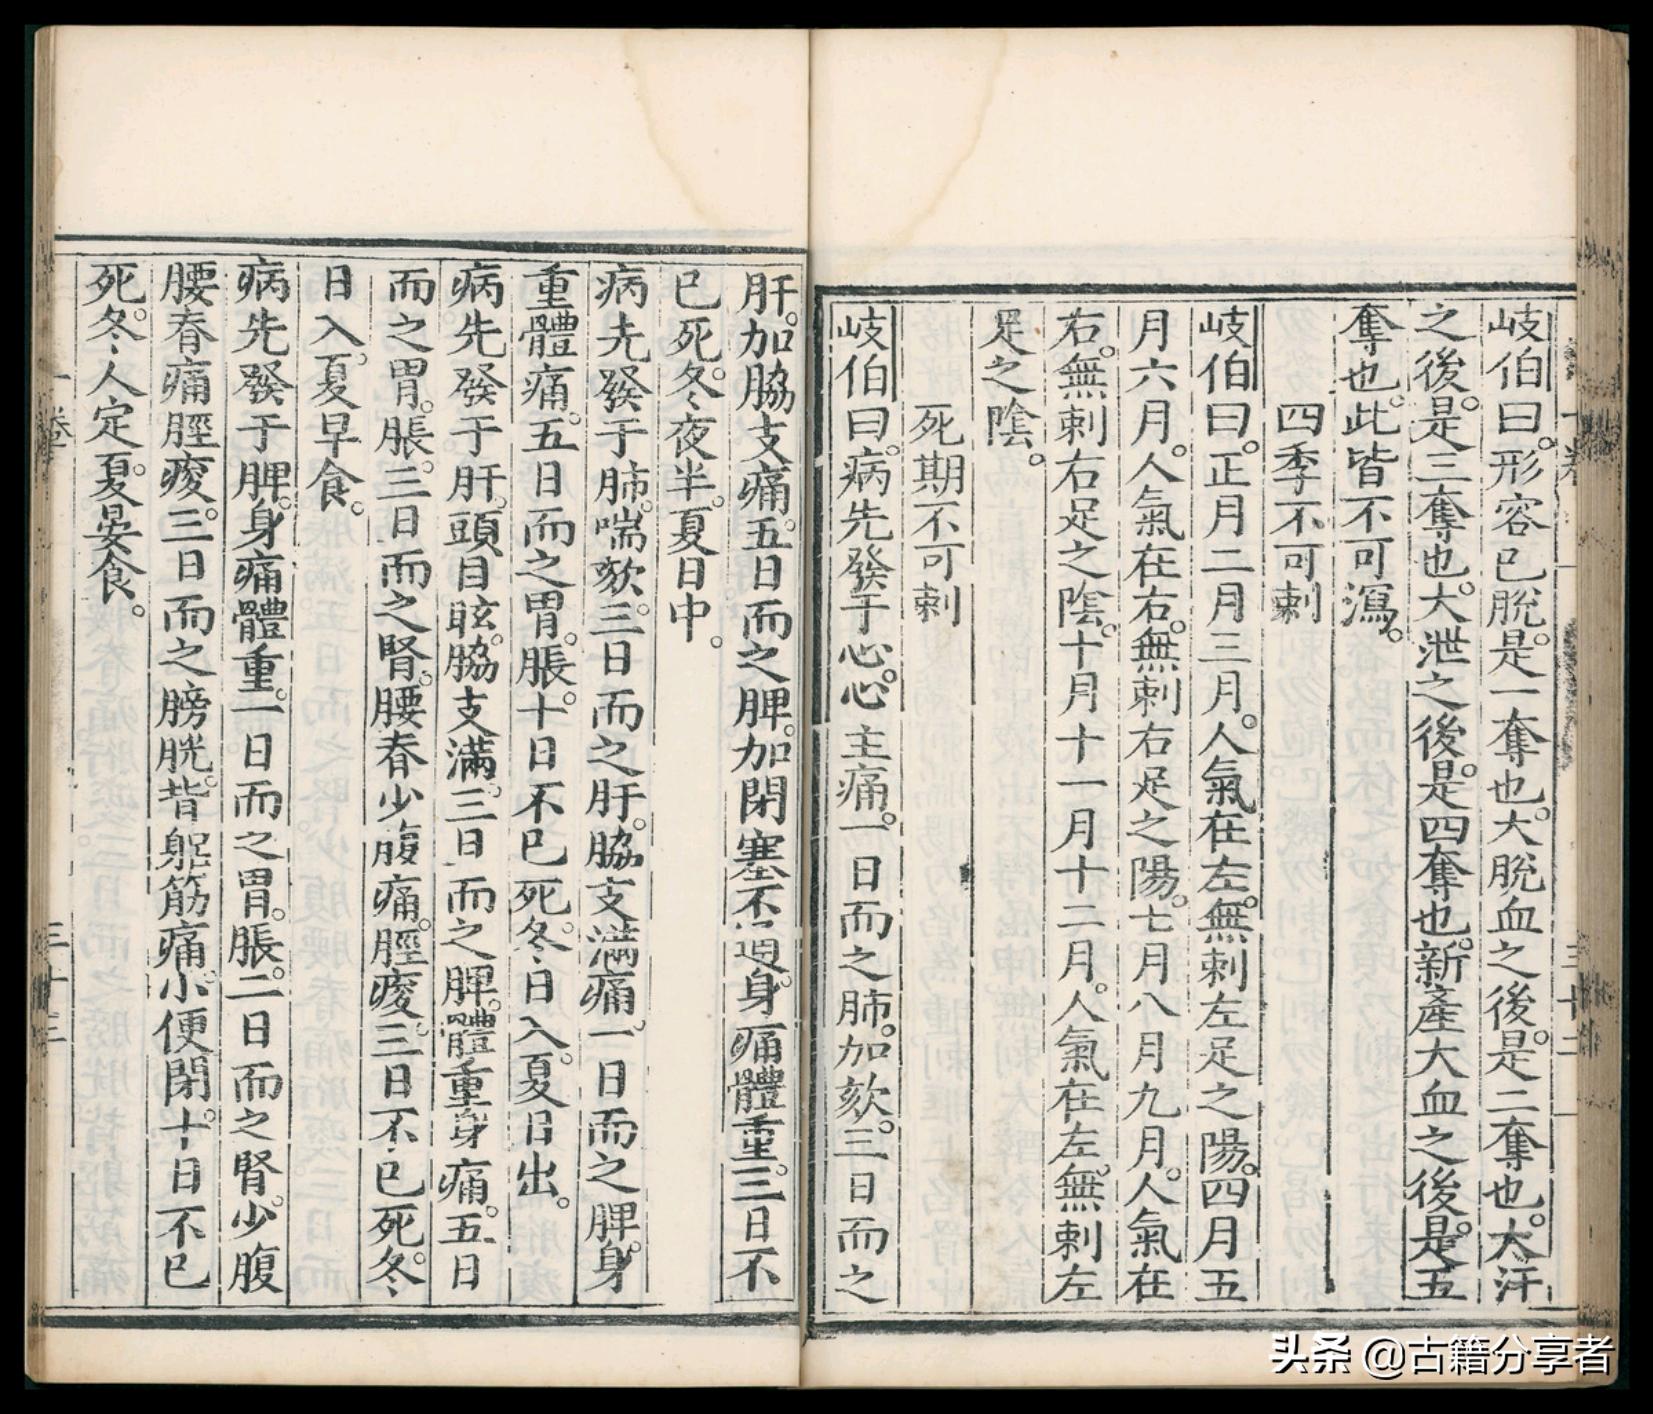 岐伯曰。形容已脫。是一奪也。大脫血之後。是二奪也。大汗
之後。是三奪也。大泄之後。是四奪也。新產大血之後。是五
奪也。此皆不可瀉。
四季不可刺
岐伯曰。正月二月三月。人氣在左。無刺左足之陽。四月五
月六月。人氣在右。無刺右足之陽。七月八月九月。人氣在
右。無刺右足之陰。十月十一月十二月。人氣在左。無刺左
足之陰。
死期不可刺
岐伯曰。病先發于心。心主痛。一日而之肺。加欬。三日而之
肝。加脇支痛。五日而之脾。加閉塞不通。身痛體重。三日不
已死。冬夜半。夏日中。
病先發于肺。喘欬。三日而之肝。脇支滿痛。一日而之脾。身
重體痛。五日而之胃。脹。十日不已死。冬日入。夏日出。
病先發于肝。頭目眩。脇支滿。三日而之脾。體重身痛。五日
而之胃。脹。三日而之腎。腰脊少腹痛。脛痠。三日不已死。冬
日入。夏早食。
病先發于脾。身痛體重。一日而之胃。脹。二日而之腎。少腹
腰脊痛脛痠。三日而之膀胱。背䏚筋痛。小便閉。十日不已
死。冬人定。夏晏食。
三十二
三十三
头条 @古籍分享者